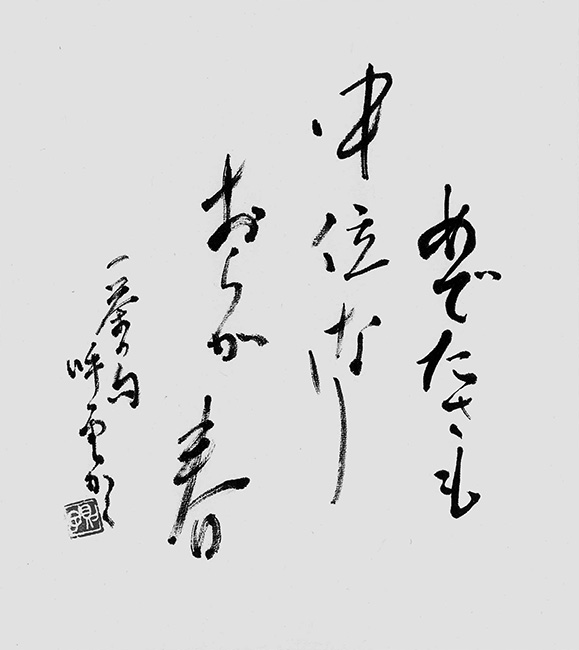 めでたさも
中位なり
おらが春
一茶の句
呼雲かく